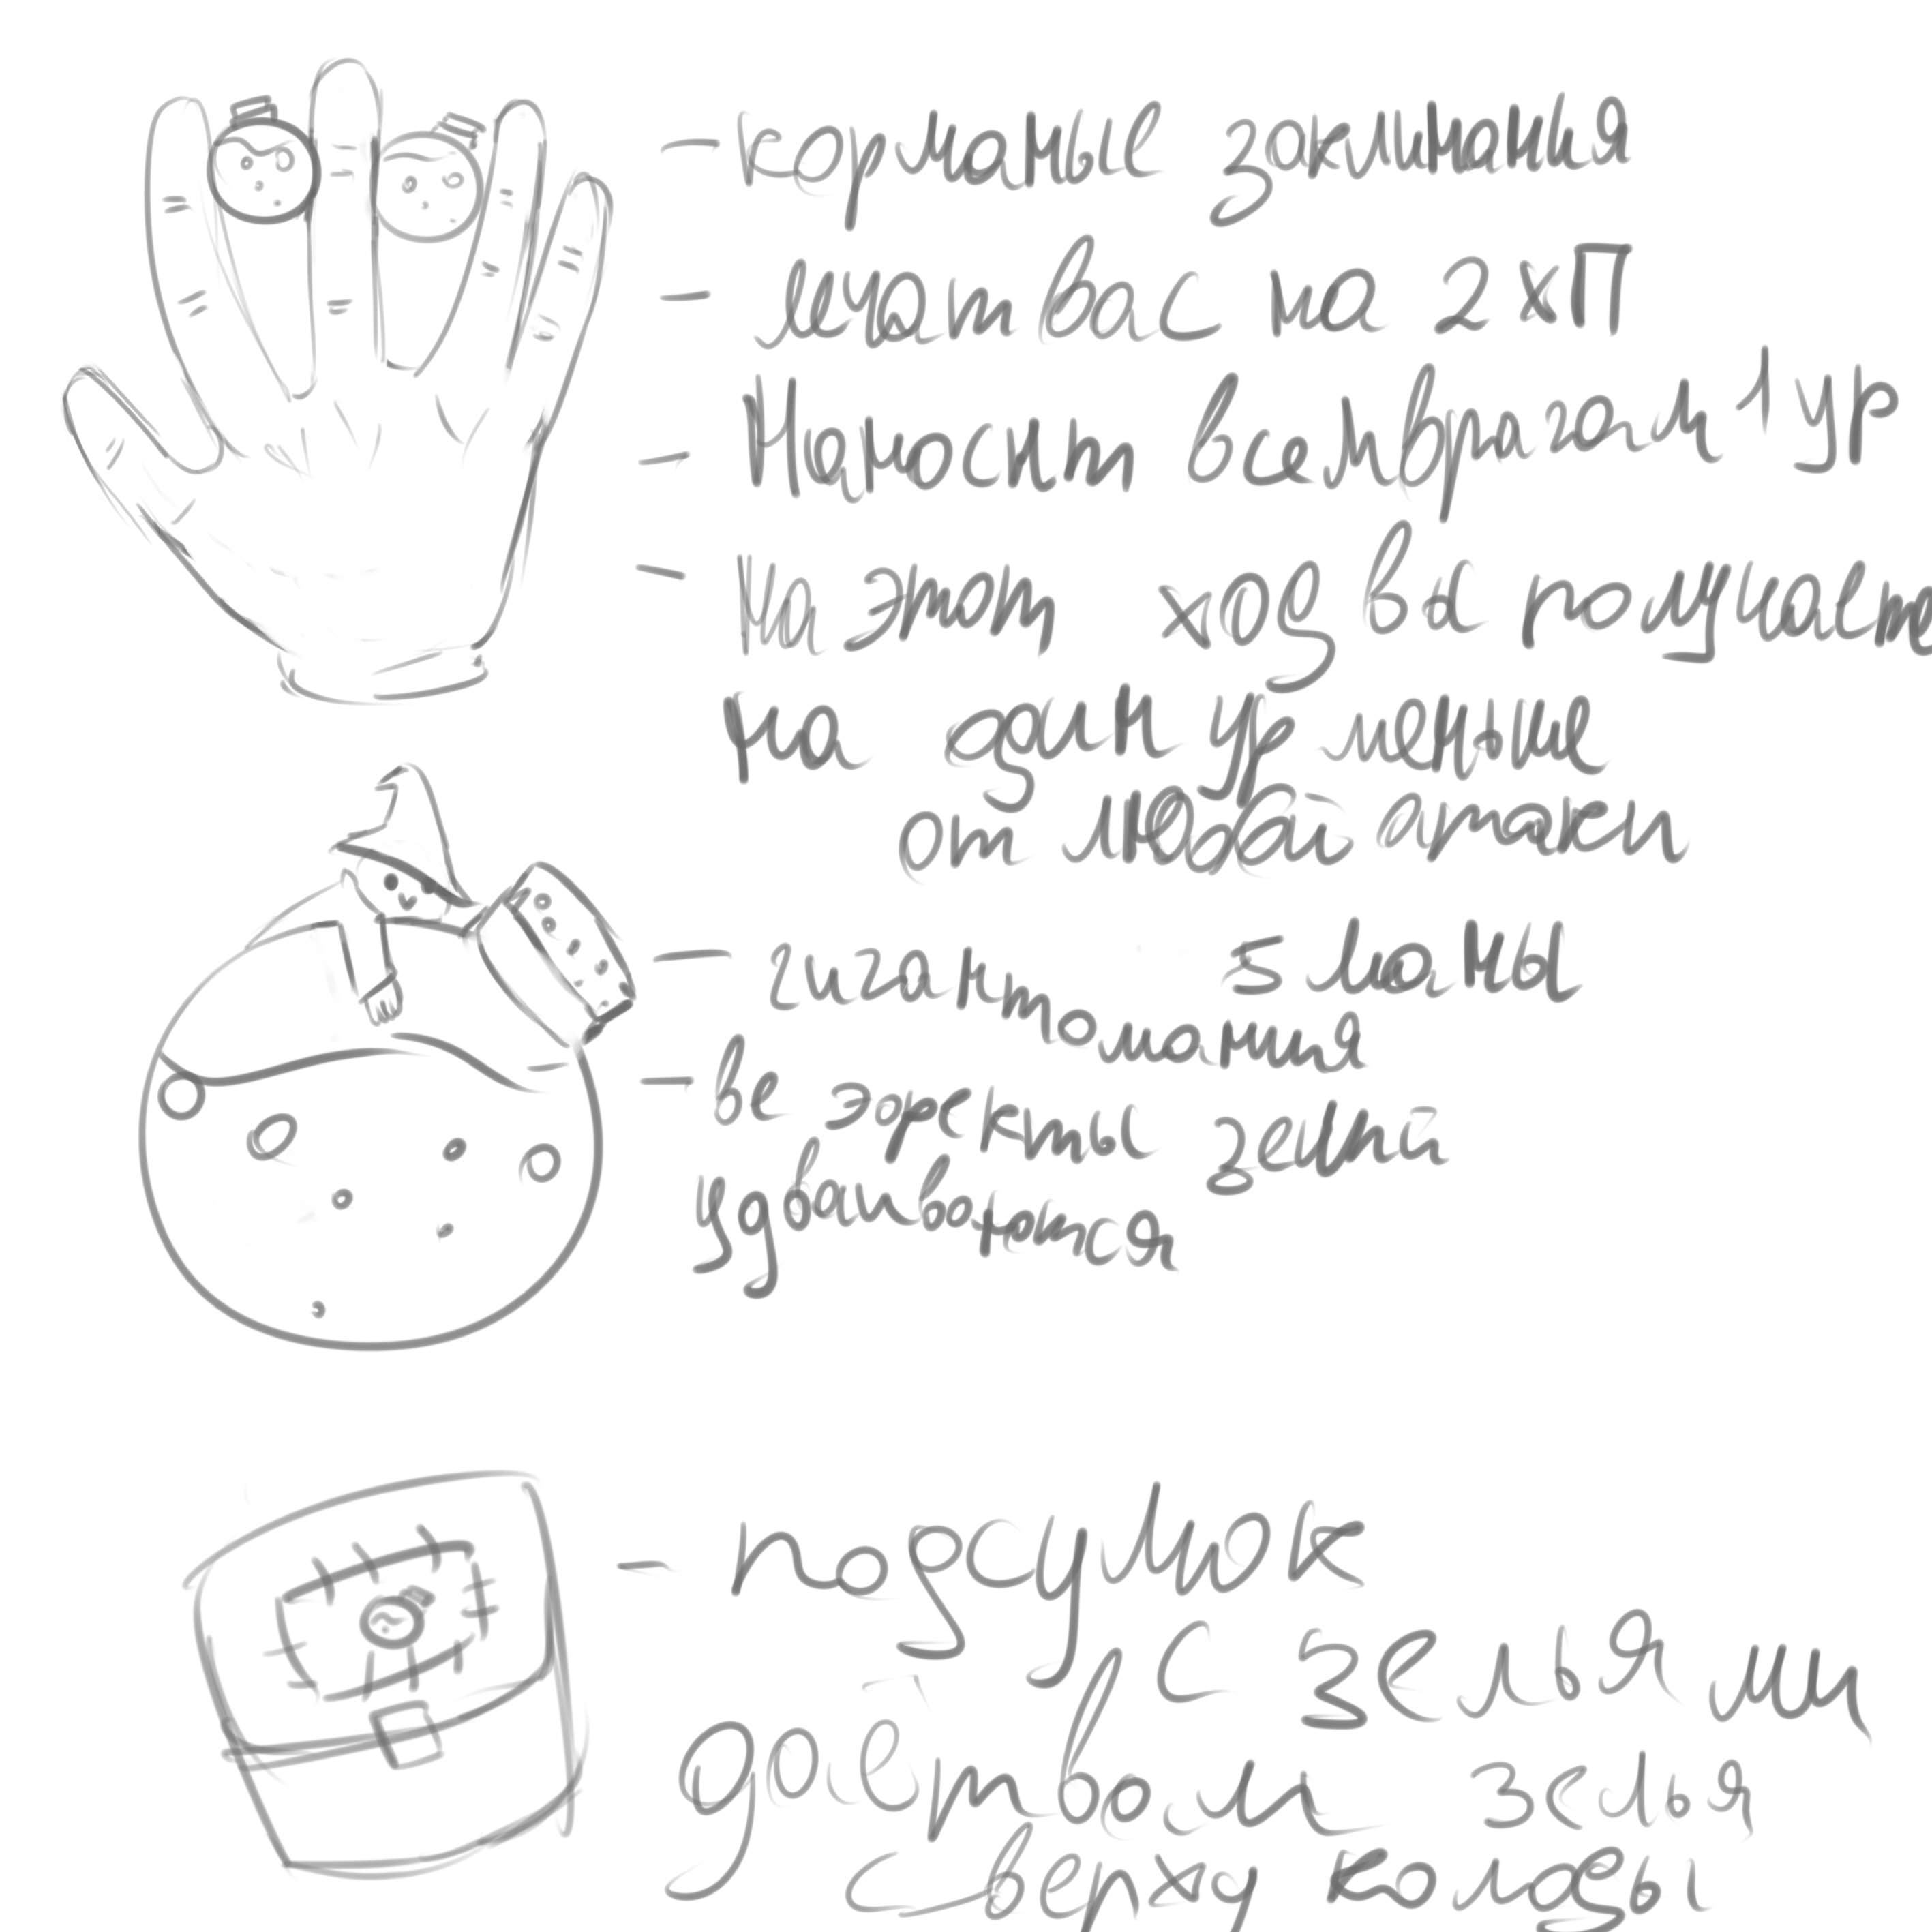 - карманые заклинания
- лечат вас на 2 хп
- Наносит всем врагам 1 ур
- на этот ход вы получаете
на один ур меньше
от любой атаки
- гигантомания 5 маны
- ве эфекты зелий
удваиваются
- подсумок
с зельями
даёт вам зелья
сверху колоды